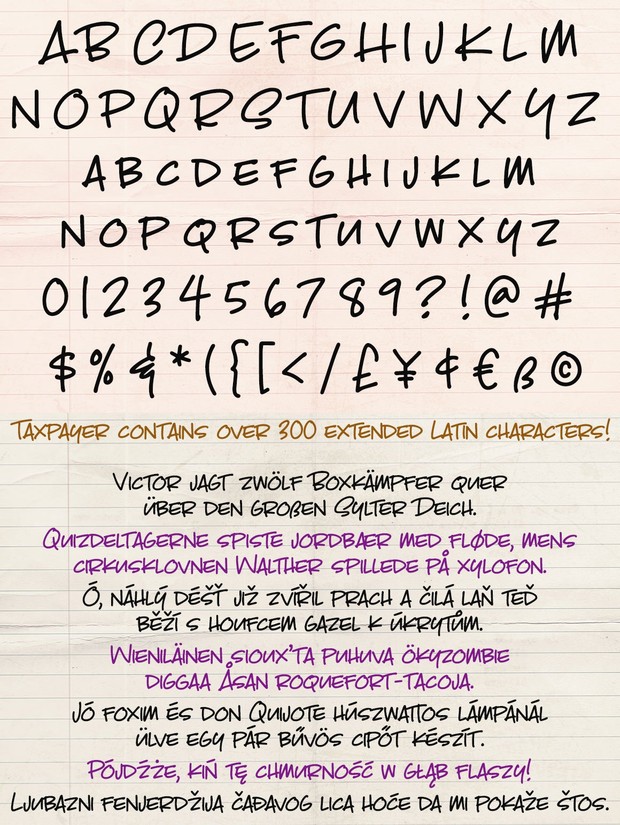 A B C D E F G H I J K L M
N O P Q R S T U V W X Y Z
A B C D E F G H I J K L M
N O P Q R S T U V W X Y Z
0 1 2 3 4 5 6 7 8 9 ? ! @ #
$ % & * ( { [ < / £ ¥ ¢ € ß ©
TAXPAYER CONTAINS OVER 300 EXTENDED LATIN CHARACTERS!
VICTOR JAGT ZWÖLF BOXKÄMPFER QUER
ÜBER DEN GROßEN SYLTER DEICH.
QUIZDELTAGERNE SPISTE JORDBÆR MED FLØDE, MENS
CIRKUSKLOVNEN WALTHER SPILLEDE PÅ XYLOFON.
Ó, NÁHLÝ DÉŠŤ JIŽ ZVÍŘIL PRACH A ČILÁ LAŇ TEĎ
BĚŽÍ S HOUFCEM GAZEL K ÚKRYTŮM.
WIENILÄINEN SIOUX'TA PUHUVA ÖKYZOMBIE
DIGGAA ÅSAN ROQUEFORT-TACOJA.
JÓ FOXIM ÉS DON QUIJOTE HÚSZWATTOS LÁMPÁNÁL
ÜLVE EGY PÁR BŰVÖS CIPŐT KÉSZÍT.
PÓJDŹŻE, KIŃ TĘ CHMURNOŚĆ W GŁĄB FLASZY!
LJUBAZNI FENJERDŽIJA ČAĐAVOG LICA HOĆE DA MI POKAŽE ŠTOS.